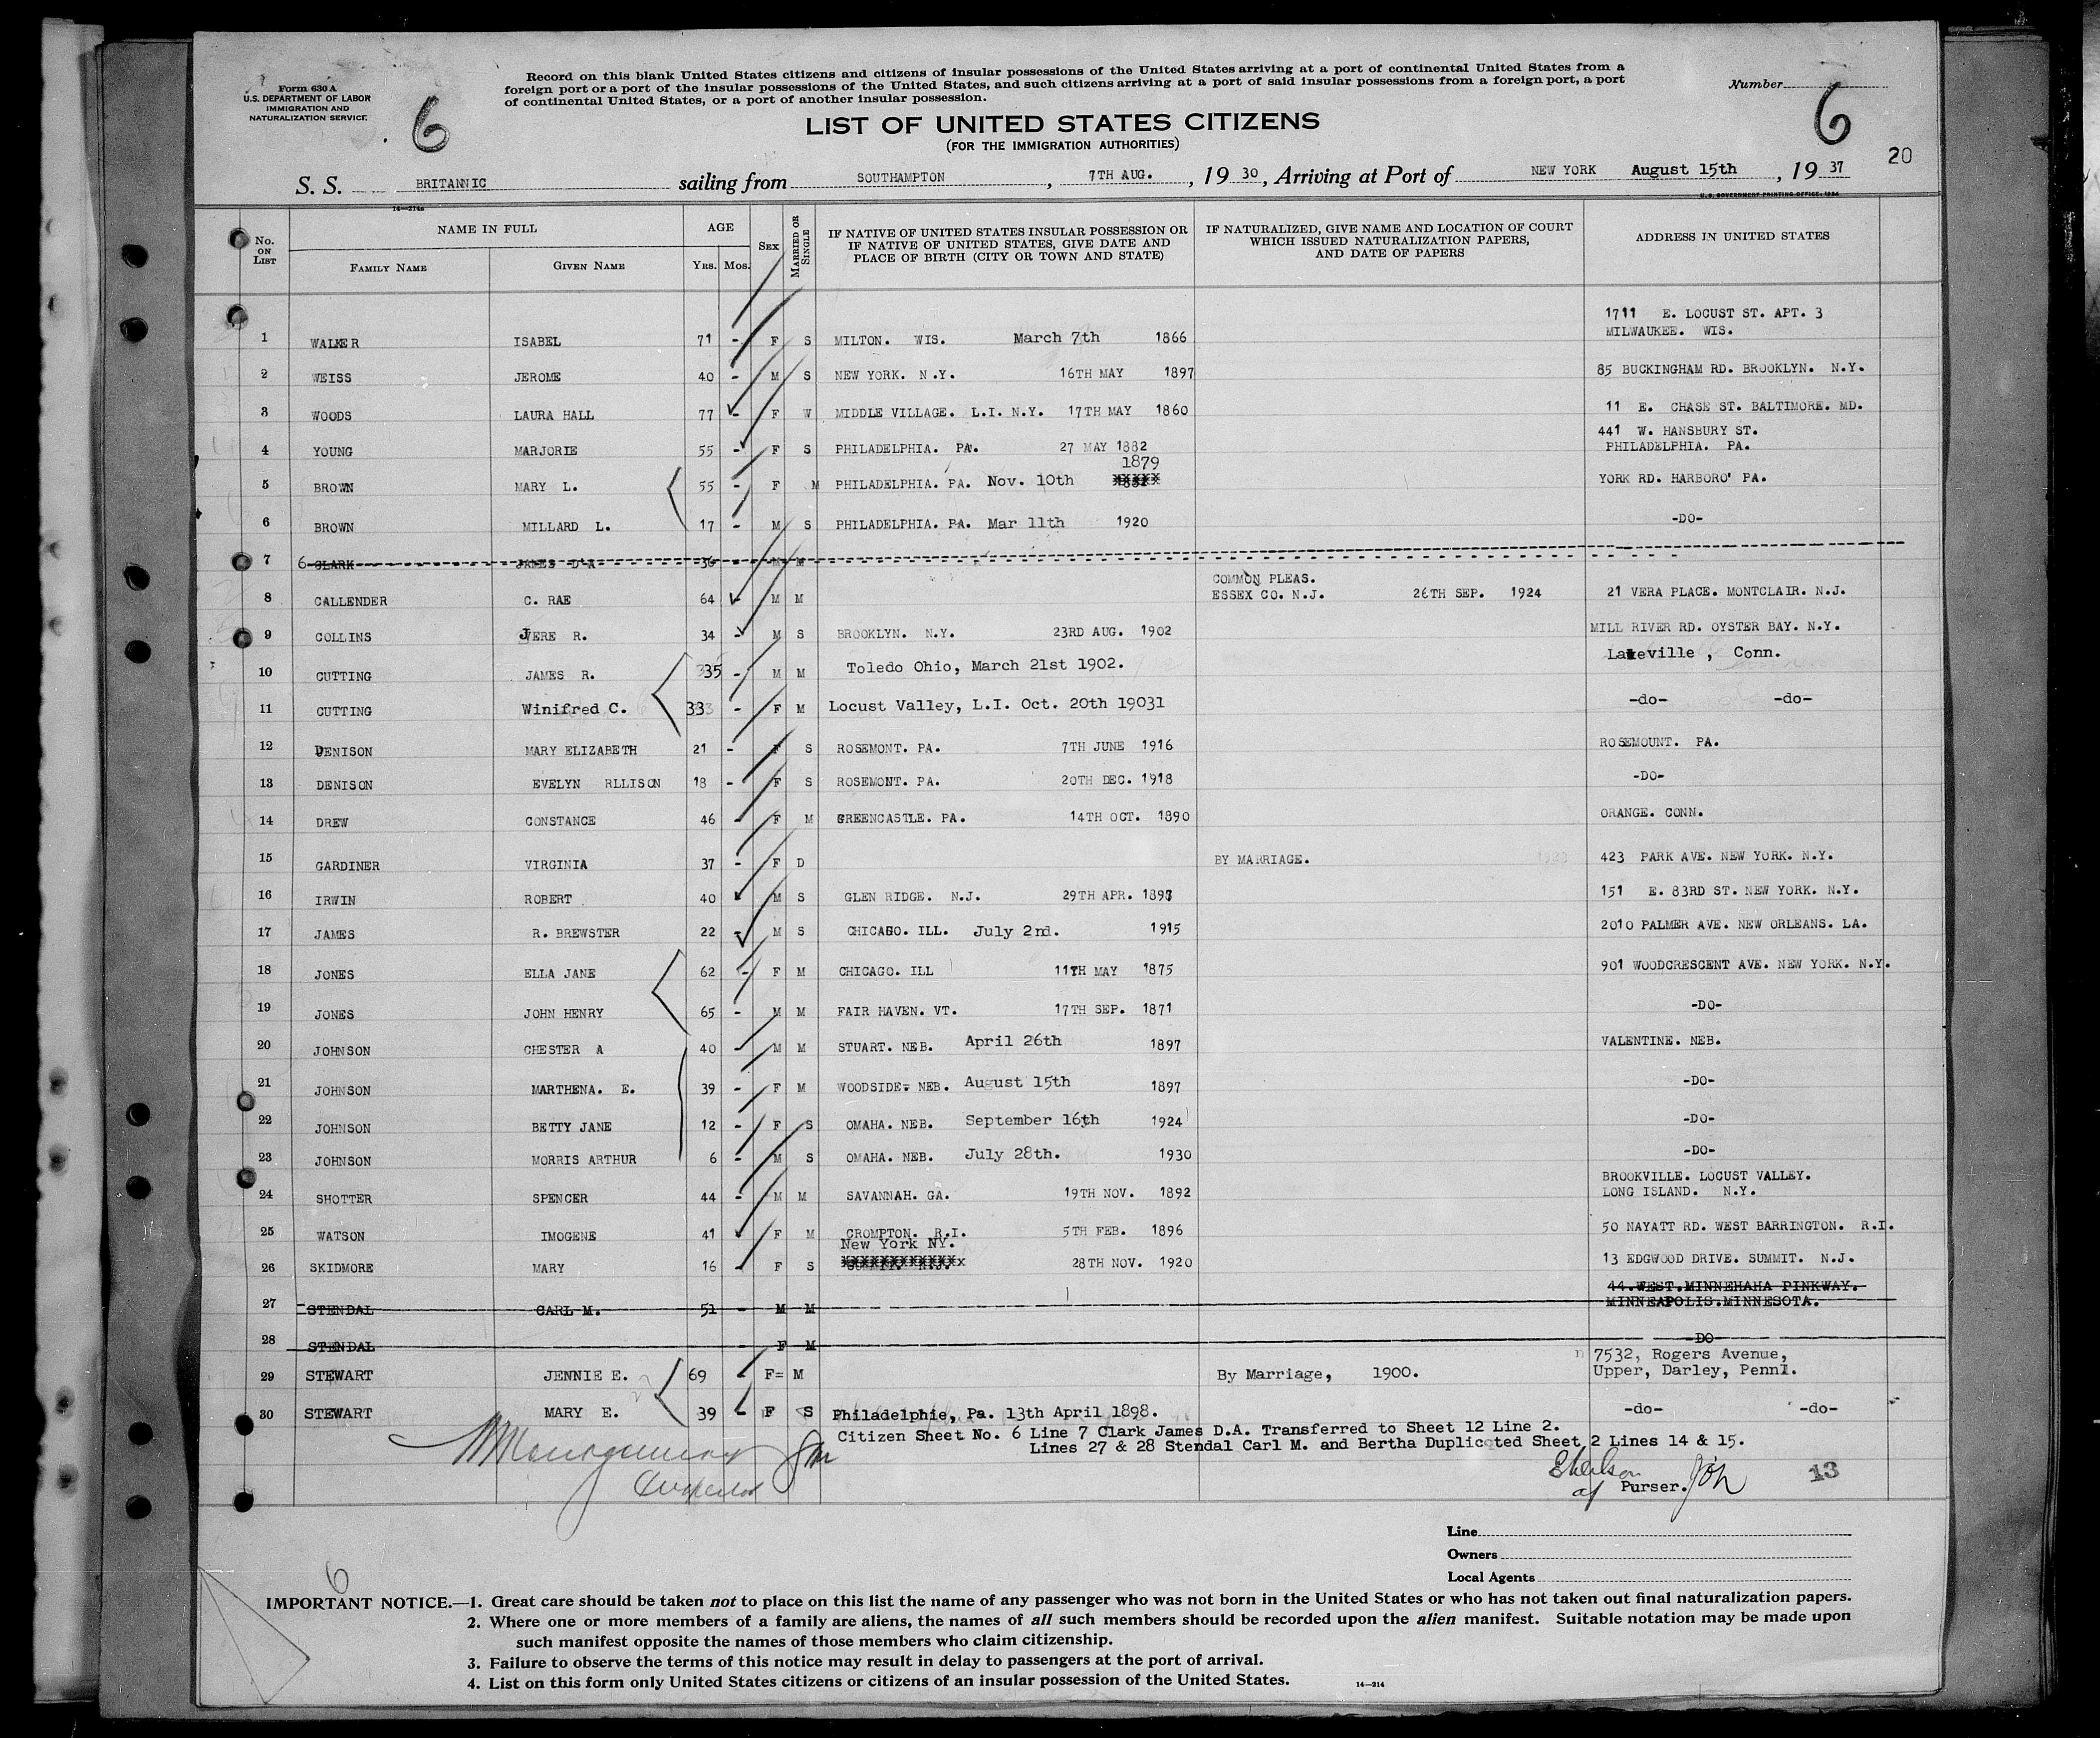 Form 630 A
U.S. DEPARTMENT OF LABOR
IMMIGRATION AND
NATURALIZATION SERVICE
6
Record on this blank United States citizens and citizens of insular possessions of the United States arriving at a port of continental United States from a
foreign port or a port of the insular possessions of the United States, and such citizens arriving at a port of said insular possessions from a foreign port, a port
of continental United States, or a port of another insular possession.
Number
6
20
LIST OF UNITED STATES CITIZENS
(FOR THE IMMIGRATION AUTHORITIES)
S. S. BRITANNIC sailing from SOUTHAMPTON, 7TH AUG., 19 30, Arriving at Port of NEW YORK August 15th, 19 37
14—214a
U. S. GOVERNMENT PRINTING OFFICE: 1934
No. ON LIST NAME IN FULL AGE SEX MARRIED OR SINGLE IF NATIVE OF UNITED STATES INSULAR POSSESSION OR IF NATIVE OF UNITED STATES, GIVE DATE AND PLACE OF BIRTH (CITY OR TOWN AND STATE) IF NATURALIZED, GIVE NAME AND LOCATION OF COURT WHICH ISSUED NATURALIZATION PAPERS, AND DATE OF PAPERS ADDRESS IN UNITED STATES
FAMILY NAME GIVEN NAME YRS. MOS.
1711 E. LOCUST ST. APT. 3
1 WALKER ISABEL 71 - F S MILTON. WIS. March 7th 1866 MILWAUKEE. WIS.
2 WEISS JEROME 40 - M S NEW YORK. N.Y. 16TH MAY 1897 85 BUCKINGHAM RD. BROOKLYN. N.Y.
3 WOODS LAURA HALL 77 - F W MIDDLE VILLAGE. L.I. N.Y. 17TH MAY 1860 11 E. CHASE ST. BALTIMORE. MD.
441 W. HANSBURY ST.
4 YOUNG MARJORIE 55 - F S PHILADELPHIA. PA. 27 MAY 1882 PHILADELPHIA. PA.
1879
5 BROWN MARY L. 55 - F M PHILADELPHIA. PA. Nov. 10th YORK RD. HARBORO' PA.
6 BROWN MILLARD L. 17 - M S PHILADELPHIA. PA. Mar 11th 1920 -DO-
7 6 CLARK JAMES D'A 36 - M M
COMMON PLEAS.
8 CALLENDER C. RAE 64 - M M ESSEX CO. N.J. 26TH SEP. 1924 21 VERA PLACE. MONTCLAIR. N.J.
9 COLLINS JERE R. 34 - M S BROOKLYN. N.Y. 23RD AUG. 1902 MILL RIVER RD. OYSTER BAY. N.Y.
10 CUTTING JAMES R. 35 - M M Toledo Ohio, March 21st 1902. Lakeville , Conn.
11 CUTTING Winifred C. 33 - F M Locust Valley, L.I. Oct. 20th 19031 -do- -do-
12 DENISON MARY ELIZABETH 21 - F S ROSEMONT. PA. 7TH JUNE 1916 ROSEMOUNT. PA.
13 DENISON EVELYN RLLISON 18 - F S ROSEMONT. PA. 20TH DEC. 1918 -DO-
14 DREW CONSTANCE 46 - F M GREENCASTLE. PA. 14TH OCT. 1890 ORANGE. CONN.
15 GARDINER VIRGINIA 37 - F D BY MARRIAGE. 423 PARK AVE. NEW YORK. N.Y.
16 IRWIN ROBERT 40 M S GLEN RIDGE. N.J. 29TH APR. 1897 151 E. 83RD ST. NEW YORK. N.Y.
17 JAMES R. BREWSTER 22 - M S CHICAGO. ILL. July 2nd. 1915 2010 PALMER AVE. NEW ORLEANS. LA.
18 JONES ELLA JANE 62 - F M CHICAGO. ILL 11TH MAY 1875 901 WOODCRESCENT AVE. NEW YORK. N.Y.
19 JONES JOHN HENRY 65 - M M FAIR HAVEN. VT. 17TH SEP. 1871 -DO-
20 JOHNSON CHESTER A 40 - M M STUART. NEB. April 26th 1897 VALENTINE. NEB.
21 JOHNSON MARTHENA. E. 39 - F M WOODSIDE. NEB. August 15th 1897 -DO-
22 JOHNSON BETTY JANE 12 - F S OMAHA. NEB. September 16th 1924 -DO-
23 JOHNSON MORRIS ARTHUR 6 - M S OMAHA. NEB. July 28th. 1930 -DO-
BROOKVILLE. LOCUST VALLEY.
24 SHOTTER SPENCER 44 - M M SAVANNAH. GA. 19TH NOV. 1892 LONG ISLAND. N.Y.
25 WATSON IMOGENE 41 F M CROMPTON. R.I. 5TH FEB. 1896 50 NAYATT RD. WEST BARRINGTON. R.I.
New York NY.
26 SKIDMORE MARY 16 - F S 28TH NOV. 1920 13 EDGWOOD DRIVE. SUMMIT. N.J.
44.WEST.MINNEHAHA PINKWAY.
27 STENDAL CARL M. 51 - M M MINNEAPOLIS.MINNESOTA.
28 STENDAL F M DO
7532, Rogers Avenue,
29 STEWART JENNIE E. 69 F= M By Marriage, 1900. Upper, Darley, Penn1.
30 STEWART MARY E. 39 - F S Philadelphie, Pa. 13th April 1898. -do- -do-
Citizen Sheet No. 6 Line 7 Clark James D.A. Transferred to Sheet 12 Line 2.
Lines 27 & 28 Stendal Carl M. and Bertha Duplicated Sheet 2 Lines 14 & 15.
Purser.
13
Line
Owners
Local Agents
6
IMPORTANT NOTICE.—1. Great care should be taken not to place on this list the name of any passenger who was not born in the United States or who has not taken out final naturalization papers.
2. Where one or more members of a family are aliens, the names of all such members should be recorded upon the alien manifest. Suitable notation may be made upon
such manifest opposite the names of those members who claim citizenship.
3. Failure to observe the terms of this notice may result in delay to passengers at the port of arrival.
4. List on this form only United States citizens or citizens of an insular possession of the United States.
14—214